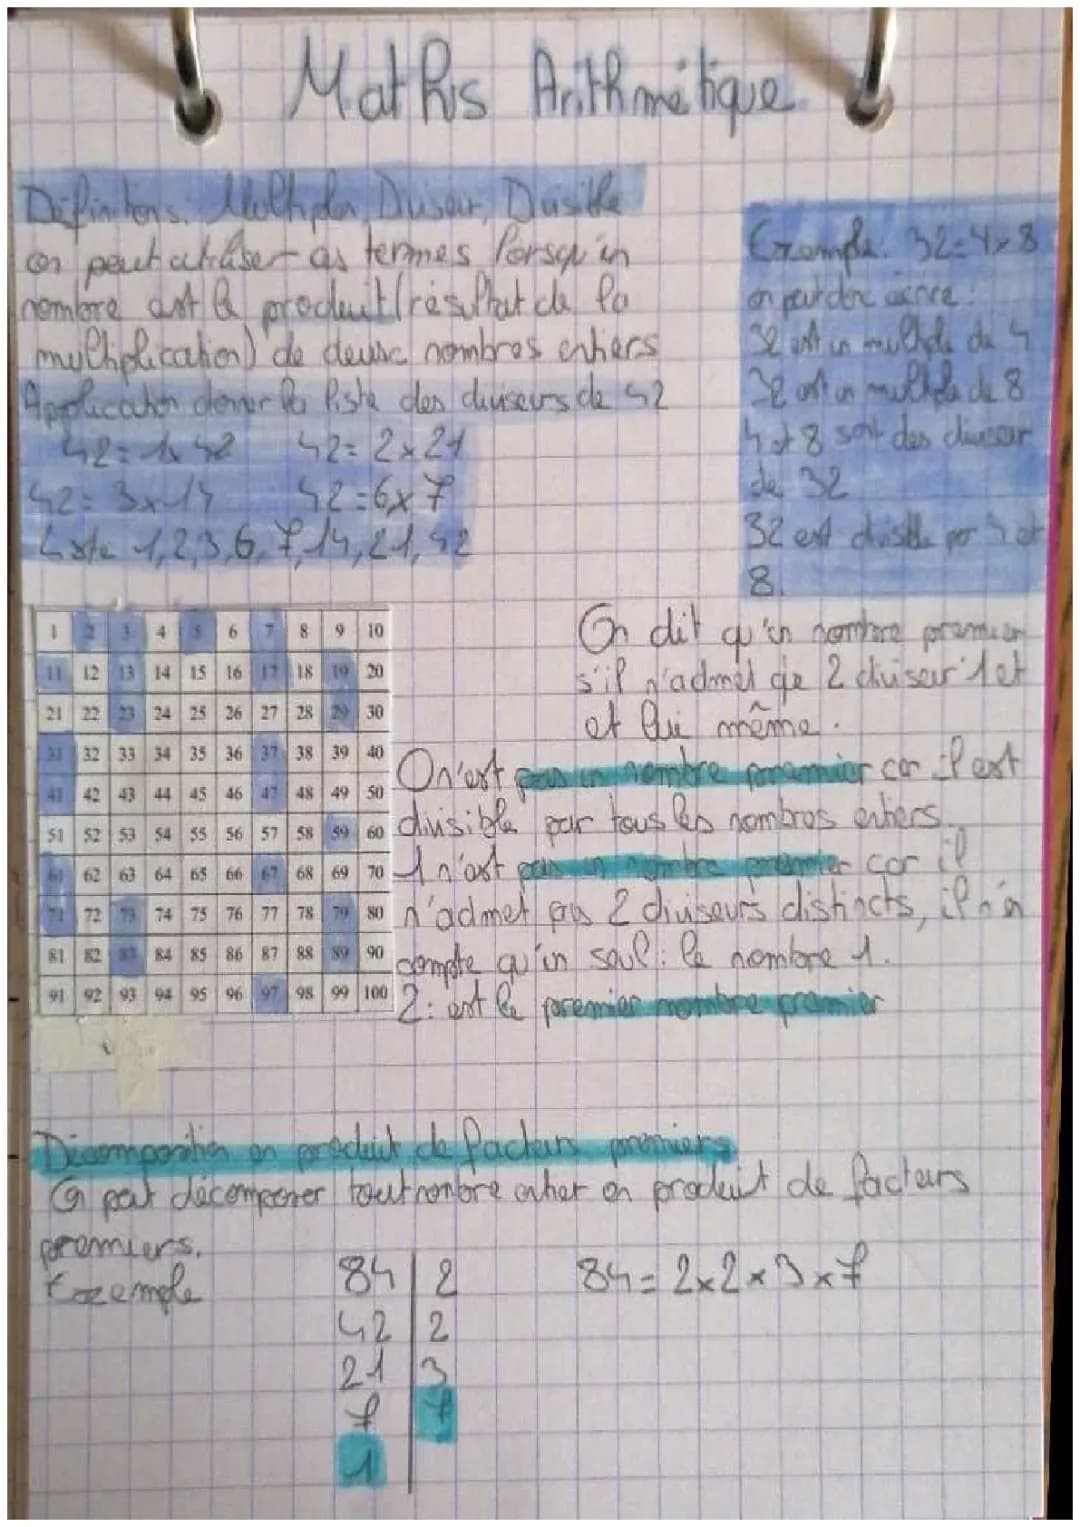 Maths Arithmétique
Définitions: Multiples, Diviseur, Divisible
on peut utiliser ces termes lorsqu'un
nombre est le produit (résultat de la
multiplication) de deux nombres entiers
Application donner la liste des diviseurs de 42
42 = 1x 42 42 = 2 x 21
42 = 3 x 14 42 = 6 x 7
Liste 1,2,3,6,7,14,21,42
Exemple: 32=4x8
on peut donc écrire:
32 est un multiple de 4
32 est un multiple de 8
4 et 8 sont des diviseur
de 32
32 est divisible par 4 et
8.
1 2 3 4 5 6 7 8 9 10
11 12 13 14 15 16 17 18 19 20
21 22 23 24 25 26 27 28 29 30
31 32 33 34 35 36 37 38 39 40
41 42 43 44 45 46 47 48 49 50
51 52 53 54 55 56 57 58 59 60
61 62 63 64 65 66 67 68 69 70
71 72 73 74 75 76 77 78 79 80
81 82 83 84 85 86 87 88 89 90
91 92 93 94 95 96 97 98 99 100
On dit qu'un nombre premier
s'il n'admet que 2 diviseur 1 et
et lui même.
0 n'est pas un nombre premier car il est
divisible par tous les nombres entiers.
1 n'est pas un nombre premier car il
n'admet pas 2 diviseurs distincts, il n'en
compte qu'un seul: le nombre 1.
2: est le premier nombre premier
Décomposition en produit de facteurs premiers
On peut décomposer tout nombre entier en produit de facteurs
premiers.
Exemple
84 | 2 84 = 2x2x3x7
42 | 2
21 | 3
7 | 7
1